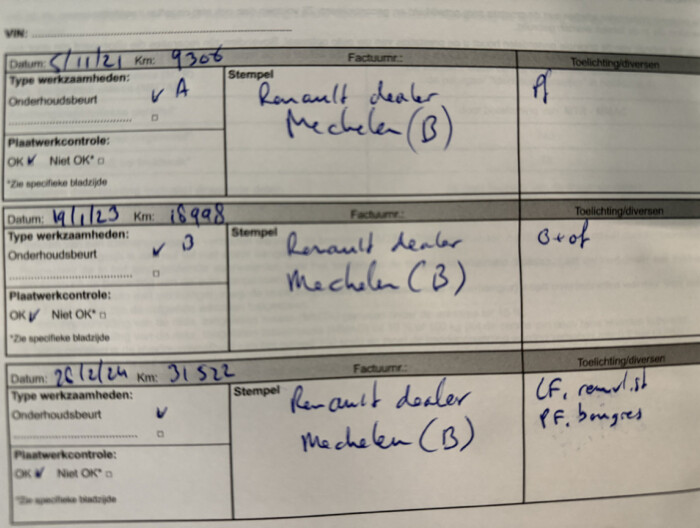 VIN:
Datum: 5/11/21 Km: 9306 Factuurnr.: Toelichting/diversen
Type werkzaamheden: Stempel
Onderhoudsbeurt A Renault dealer
Mechelen (B)
Plaatwerkcontrole:
OK Niet OK*
*Zie specifieke bladzijde
Datum: 19/1/23 Km: 18998 Factuurnr.: Toelichting/diversen
Type werkzaamheden: Stempel
Onderhoudsbeurt B Renault dealer B + of
Mechelen (B)
Plaatwerkcontrole:
OK Niet OK*
*Zie specifieke bladzijde
Datum: 26/2/24 Km: 31522 Factuurnr.: Toelichting/diversen
Type werkzaamheden: Stempel
Onderhoudsbeurt Renault dealer
Mechelen (B)
Plaatwerkcontrole:
OK Niet OK*
*Zie specifieke bladzijde